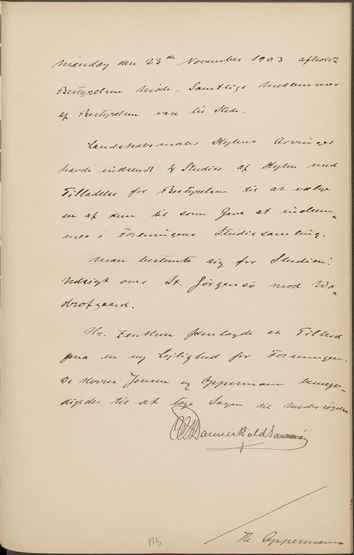 Mandag den 23de November 1903 afholdt
Bestyrelsen Møde. Samtlige Medlemmer
af Bestyrelsen var til Stede.
Landskabsmaler Kyhns Arvinger
havde indsendt 4 Studier af Kyhn med
Tilladelse for Bestyrelsen til at vælge
en af dem til som Gave at indlem-
mes i Foreningens Studiesamling.
Man bestemte sig for Studien:
Udsigt over St. Jørgensø mod
Hr. Zeuthen forelagde et Tilbud
paa en ny Lejlighed for Foreningen.
De Herrer Jensen og Oppermann bemyn-
digedes til at tage Sagen
Th. Oppermann